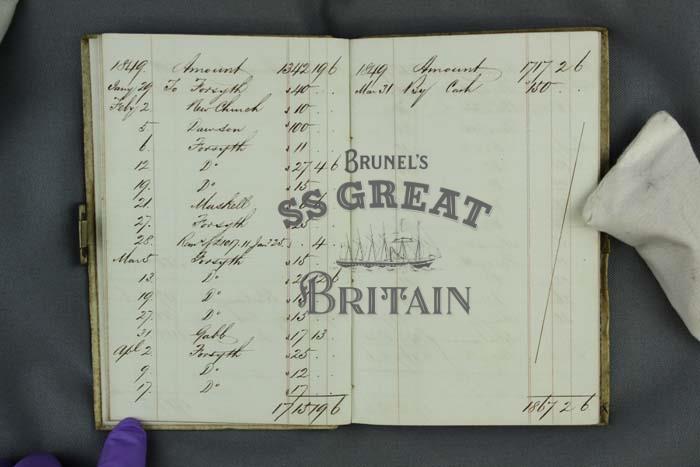 1849. Amount 1342 19 6
Jany 29 To Forsyth 40
Feby 2 New Church 10
5 Dawson 100
6 Forsyth 11
12 Do 27 4 6
19. Do 15
21 Maskell
27. Forsyth 25
28. 4
Mar 5 Forsyth 15
13. Do
19 Do
27. Do 15
31 Gabb 17 13
Apl 2 Forsyth 25
9. Do 12
17. Do 17
1715 19 6
1849 Amount 1717 2 6
Mar 31 By Cash 150
1867 2 6
BRUNEL'S
SS GREAT
BRITAIN